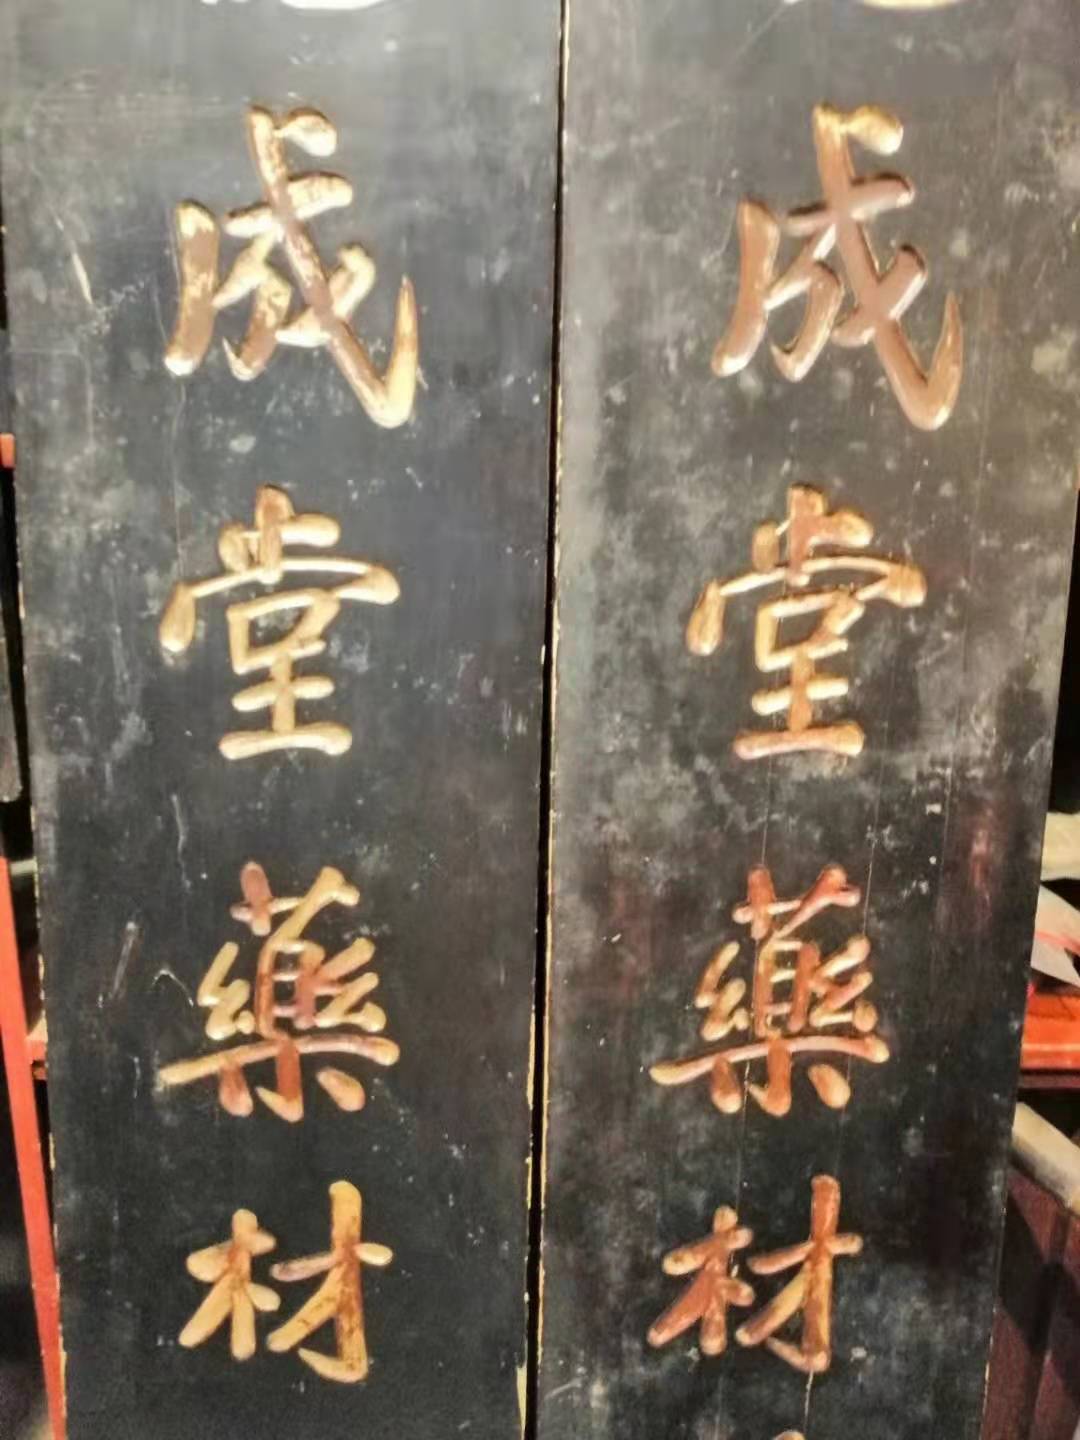 成堂藥材
成堂藥材